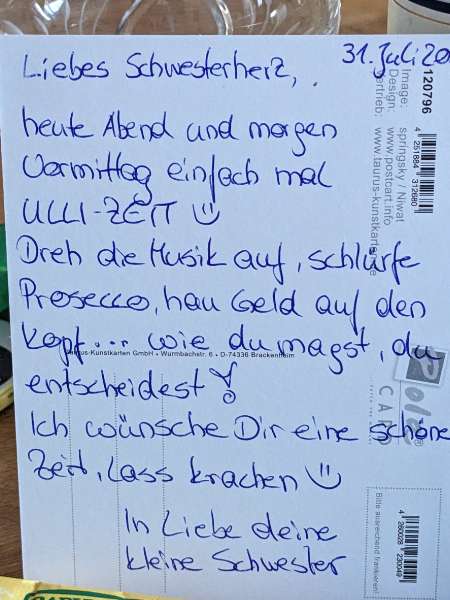 31. Juli 20
Liebes Schwesterherz,
heute Abend und morgen
Vormittag einfach mal
ULLI-ZEIT
Dreh die Musik auf, schlürfe
Prosecco, hau Geld auf den
Kopf... wie du magst, du
entscheidest!
Ich wünsche Dir eine schöne
Zeit, lass krachen
In Liebe deine
kleine Schwester
120796
Image: springsky / Niwat
Design: www.postoart.info
Vertrieb: www.taurus-kunstkarten.de
4 251884 312680
Taurus-Kunstkarten GmbH • Wurmbachstr. 6 • D-74336 Brackenheim
CA
Bitte ausreichend frankieren!
4 260028 230049